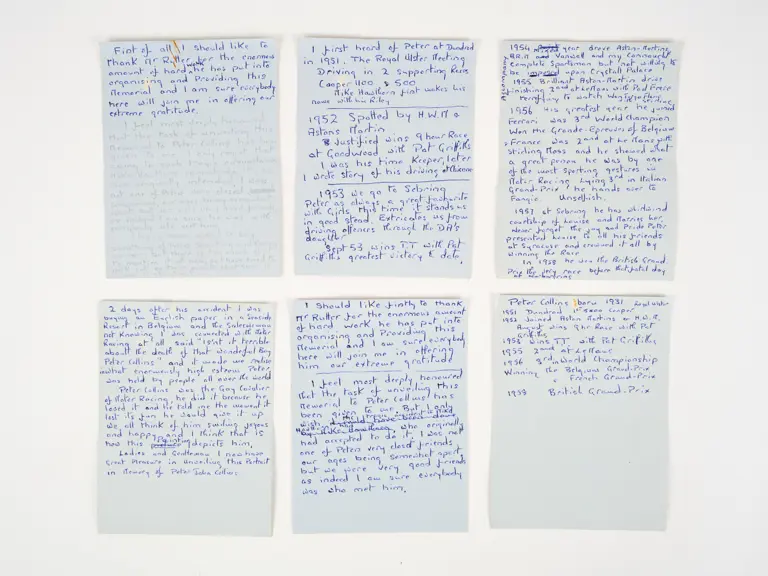 First of all I should like to
thank Mr Rutter for the enormous
amount of hard work he has put into
organising and Providing this
Memorial and I am sure everybody
here will join me in offering our
extreme gratitude.
I first heard of Peter at Dundrod
in 1951. The Royal Ulster Meeting
Driving in 2 supporting Races
Cooper 1100 & 500
Mike Hawthorn first makes his
name with his Riley
1952 Spotted by H.W.M &
Astons Martin
& Justified wins 9 hour Race
at Goodwood with Pat Griffiths
I was his time Keeper, later
I write story of his driving
1953 we go to Sebring
Peter as always a great favourite
with Girls this time it stands us
in good stead. Extricates us from
driving offences through the DA's
daughter
Sept 53 wins T.T with Pat
Griffiths greatest victory to date.
1954 year drove Aston-Martin
BRM and Vanwall and my Connaught
complete Sportsman but not willing to
be upon Crystall Palace
1955 Brilliant Aston-Martin drive
finishing 2nd at Le Mans with Paul Frere
1956 his greatest year he joined
Ferrari was 3rd World Champion
Won the Grande-Epreuves of Belgium
& France was 2nd at Le Mans with
Stirling Moss and he showed what
a great person he was by one
of the most sporting gestures in
Motor Racing. Lying 3rd in Italian
Grand-Prix, he hands over to
Fangio. Unselfish.
1957 at Sebring he has whirlwind
courtship of Louise and Marries her.
Never forget the joy and Pride Peter
presented Louise to all his friends
at Syracuse and crowned it all by
winning the Race
In 1958 he won the British Grand
Prix the very race before that fatal day
at Nurburgring
2 days after his accident I was
buying an English paper in a Seaside
Resort in Belgium and the Salesman
not Knowing I was connected with Motor
Racing at all said "Isn't it terrible
about the death of that wonderful boy
Peter Collins" and it made me realise
what enormously high esteem Peter
was held by people all over the world
Peter Collins was the Gay Cavalier
of Motor Racing, he did it because he
loved it and he told me the moment it
lost its fun he would give it up
We all think of him smiling joyous
and happy and I think that is
how this painting depicts him.
Ladies and Gentleman I now have
Great Pleasure in Unveiling this Portrait
in Memory of Peter John Collins
I should like firstly to thank
Mr Rutter for the enormous amount
of hard work he has put into
organising and Providing this
Memorial and I am sure everybody
here will join me in offering
him our extreme gratitude.
I feel most deeply honoured
that the task of unveiling this
Memorial to Peter Collins has
been given to me. But I only
wish
who originally
had accepted to do it. I was not
one of Peters very close friends
our ages being somewhat apart
but we were very good friends
as indeed I am sure everybody
was who met him.
Peter Collins born 1931
1951 Dundrod 1st 500cc Cooper
1952 Joined Aston Martins & H.W.M.
August wins 9 hr Race with Pat
Griffiths
1953 wins T.T with Pat Griffiths
1955 2nd at Le Mans
1956 3rd World Championship
Winning the Belgium Grand-Prix
& French Grand-Prix
1958 British Grand-Prix